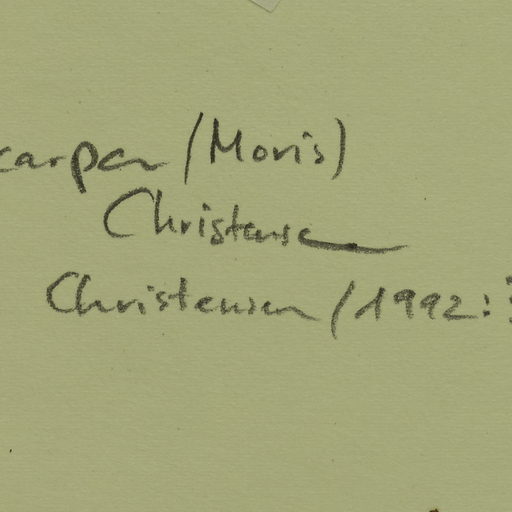 carpa (Moris)
Christense
Christensen (1992: